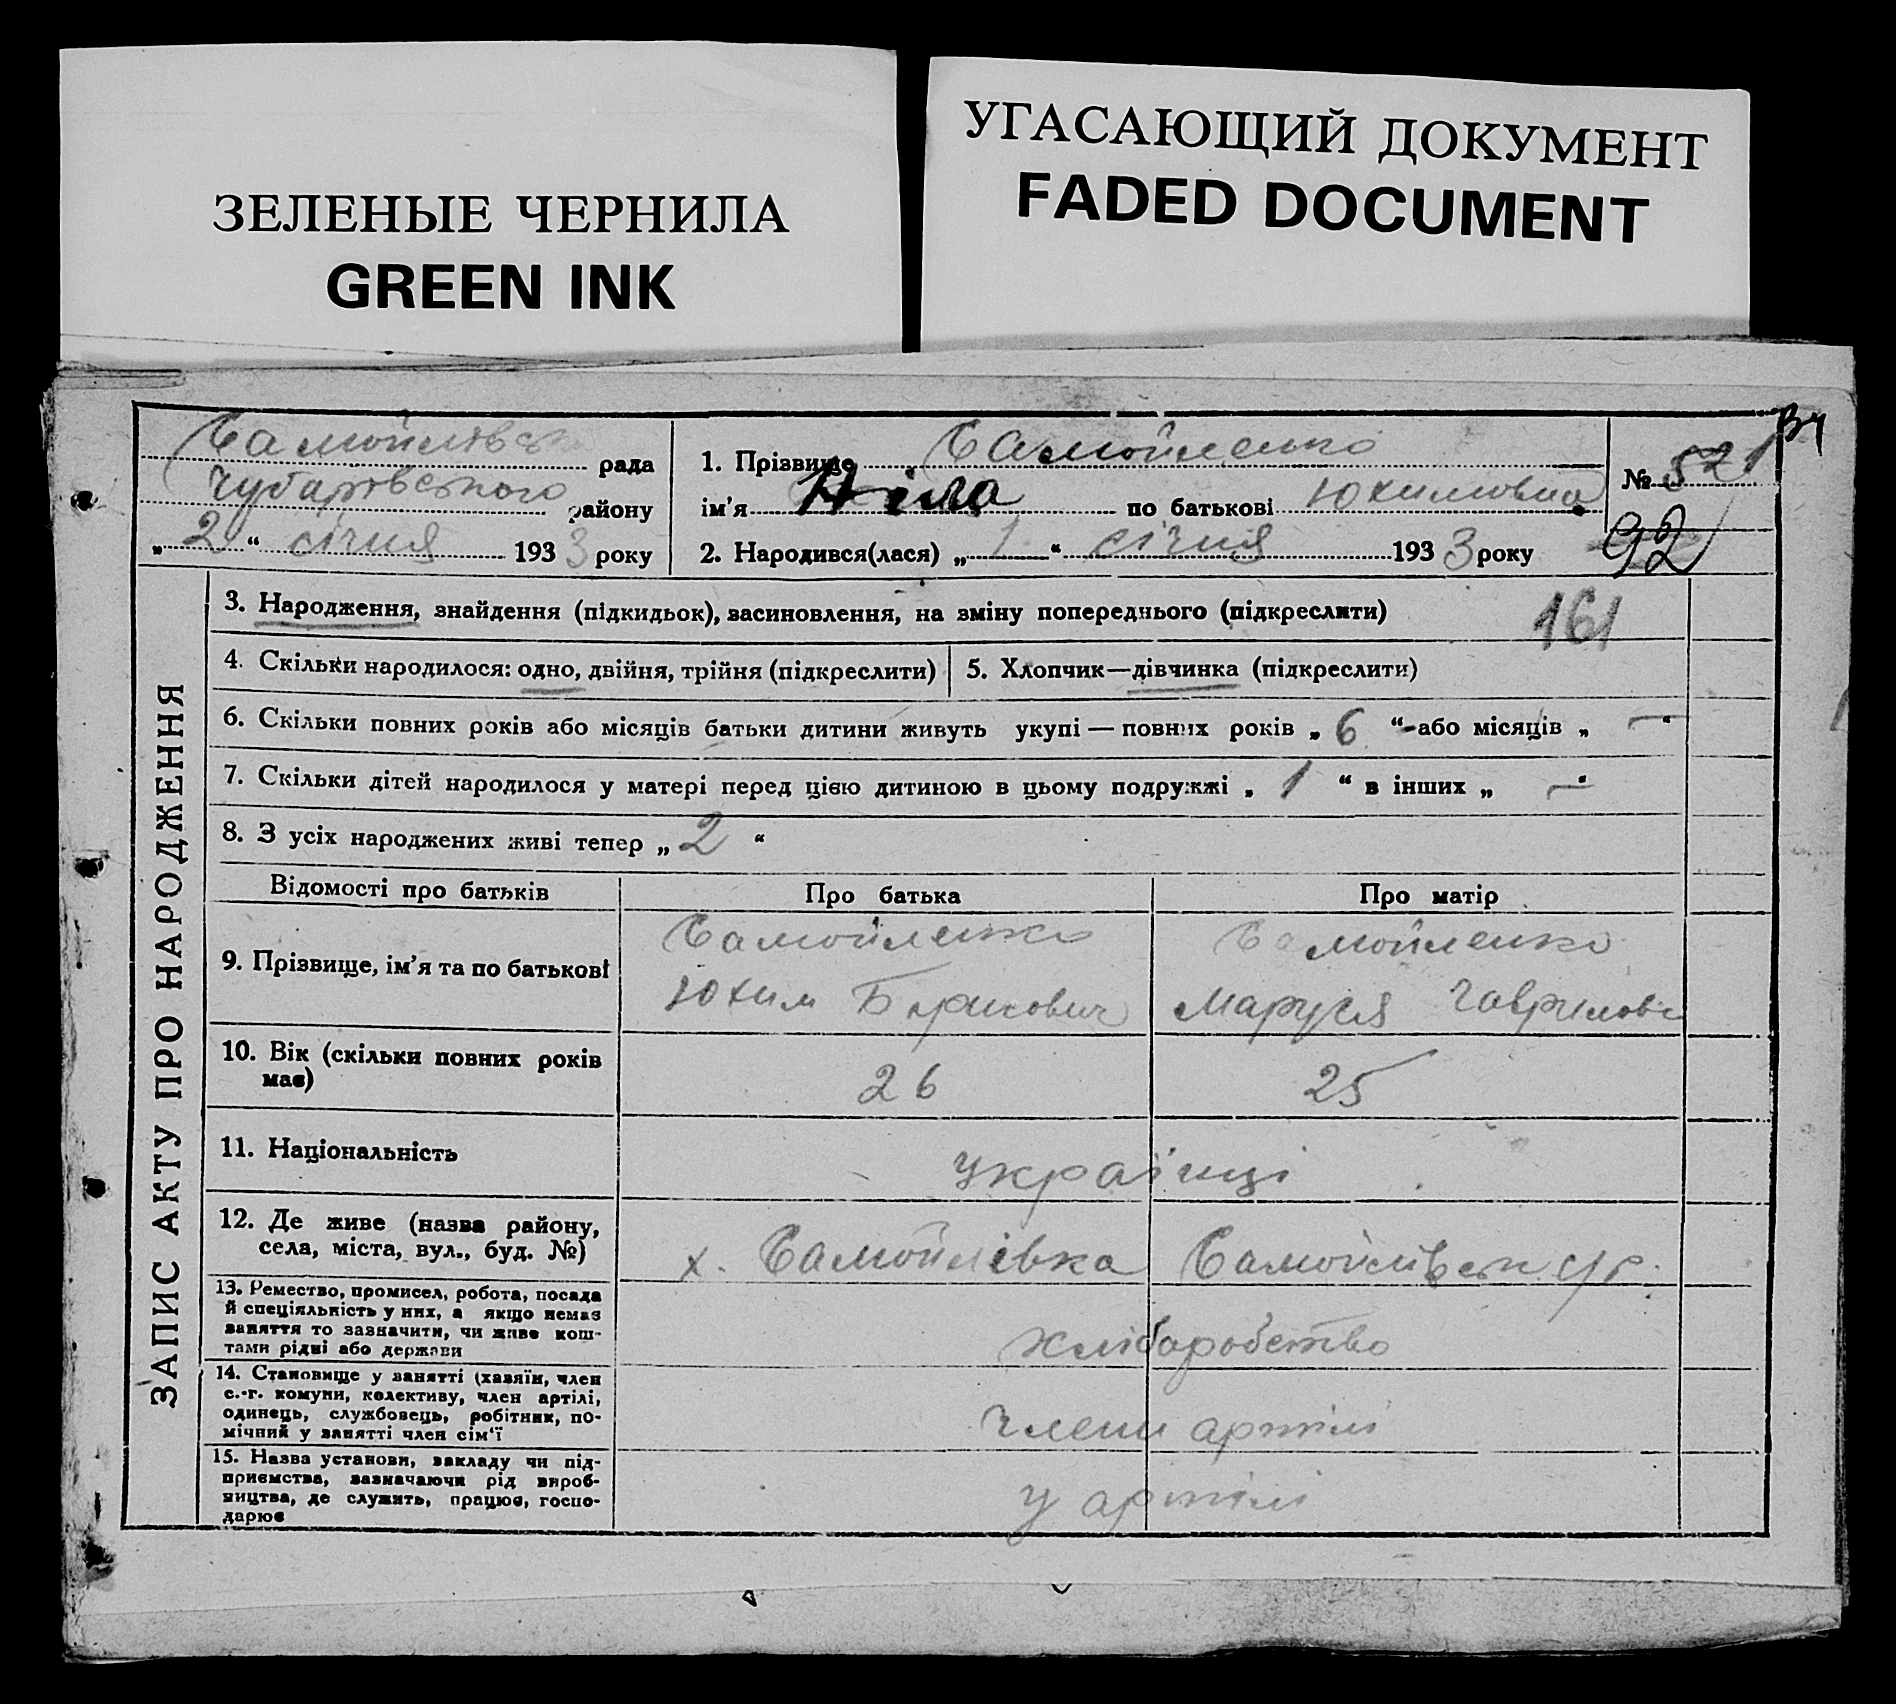 ЗЕЛЕНЫЕ ЧЕРНИЛА
GREEN INK
УГАСАЮЩИЙ ДОКУМЕНТ
FADED DOCUMENT
Самойлівсь рада
Чубарівського району
„ 2 “ січня 193 3 року
1. Прізвище Самойленко
ім'я Ніла по батькові Юхимовна
2. Народився(лася) „ 1 “ січня 193 3 року
№ 521
92
161
ЗАПИС АКТУ ПРО НАРОДЖЕННЯ
3. Народження, знайдення (підкидьок), васиновлення, на зміну попереднього (підкреслити)
4. Скільки народилося: одно, двійня, трійня (підкреслити)
5. Хлопчик—дівчинка (підкреслити)
6. Скільки повних років або місяців батьки дитини живуть укупі — повних років „ 6 “ або місяців „ — “
7. Скільки дітей народилося у матері перед цією дитиною в цьому подружжі „ 1 “ в інших „ — “
8. З усіх народжених живі тепер „ 2 “
Відомості про батьків
Про батька
Про матір
9. Прізвище, ім'я та по батькові
Самойленко
Юхим
Самойленко
Маруся Гаврилов
10. Вік (скільки повних років
має)
26
25
11. Національність
українці
12. Де живе (назва району,
села, міста, вул., буд. №)
х. Самойлівка
Самойлівськ с/р.
13. Ремество, промисел, робота, посада
й спеціяльність у них, а якщо немає
заняття то зазначити, чи живе кош-
тами рідні або держави
хліборобство
14. Становище у занятті (хазяїн, член
с.-г. комуни, колективу, член артілі,
одинець, службовець, робітник, по-
мічний у занятті член сім'ї
члени артілі
15. Назва установи, закладу чи під-
приємства, зазначаючи рід вироб-
ництва, де служить, працює, госпо-
дарює
у артілі